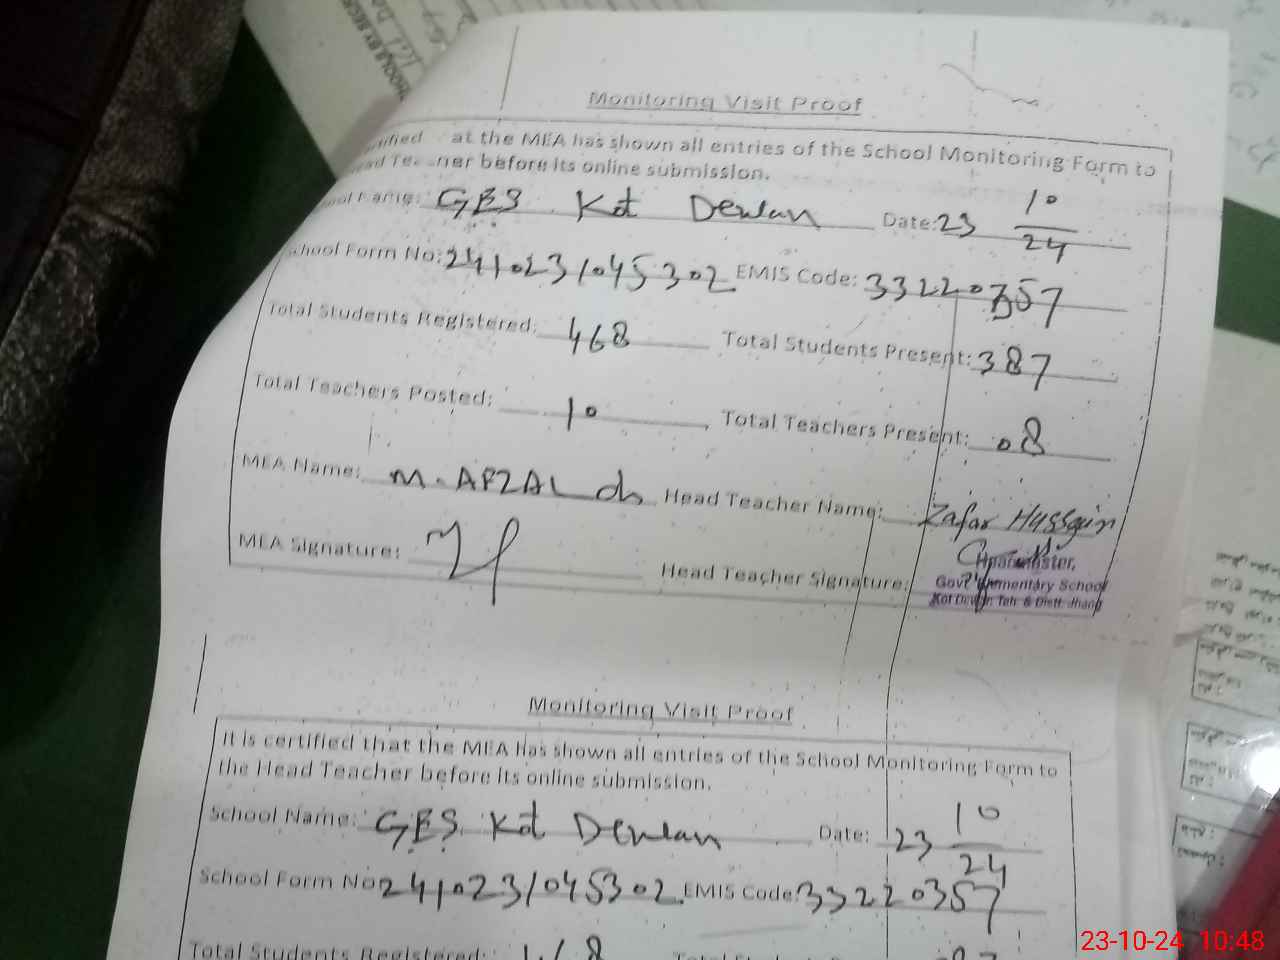 Monitoring Visit Proof
at the MEA has shown all entries of the School Monitoring Form to
before its online submission.
GES Kot Dewan Date: 23 10/24
School Form No: 2410231045302 EMIS Code: 33220357
Total Students Registered: 468 Total Students Present: 387
Total Teachers Posted: 10 Total Teachers Present: 08
MEA Name: M. AFZAL ch Head Teacher Name: Zafar Hussain
MEA Signature: Head Teacher Signature:
Headmaster,
Govt Elementary School
Kot Dewan Teh. & Distt. Jhang
Monitoring Visit Proof
It is certified that the MEA has shown all entries of the School Monitoring Form to
the Head Teacher before its online submission.
School Name: GES Kot Dewan Date: 23 10/24
School Form No 2410231045302 EMIS Code: 33220357
Total Students Registered: 468
23-10-24 10:48